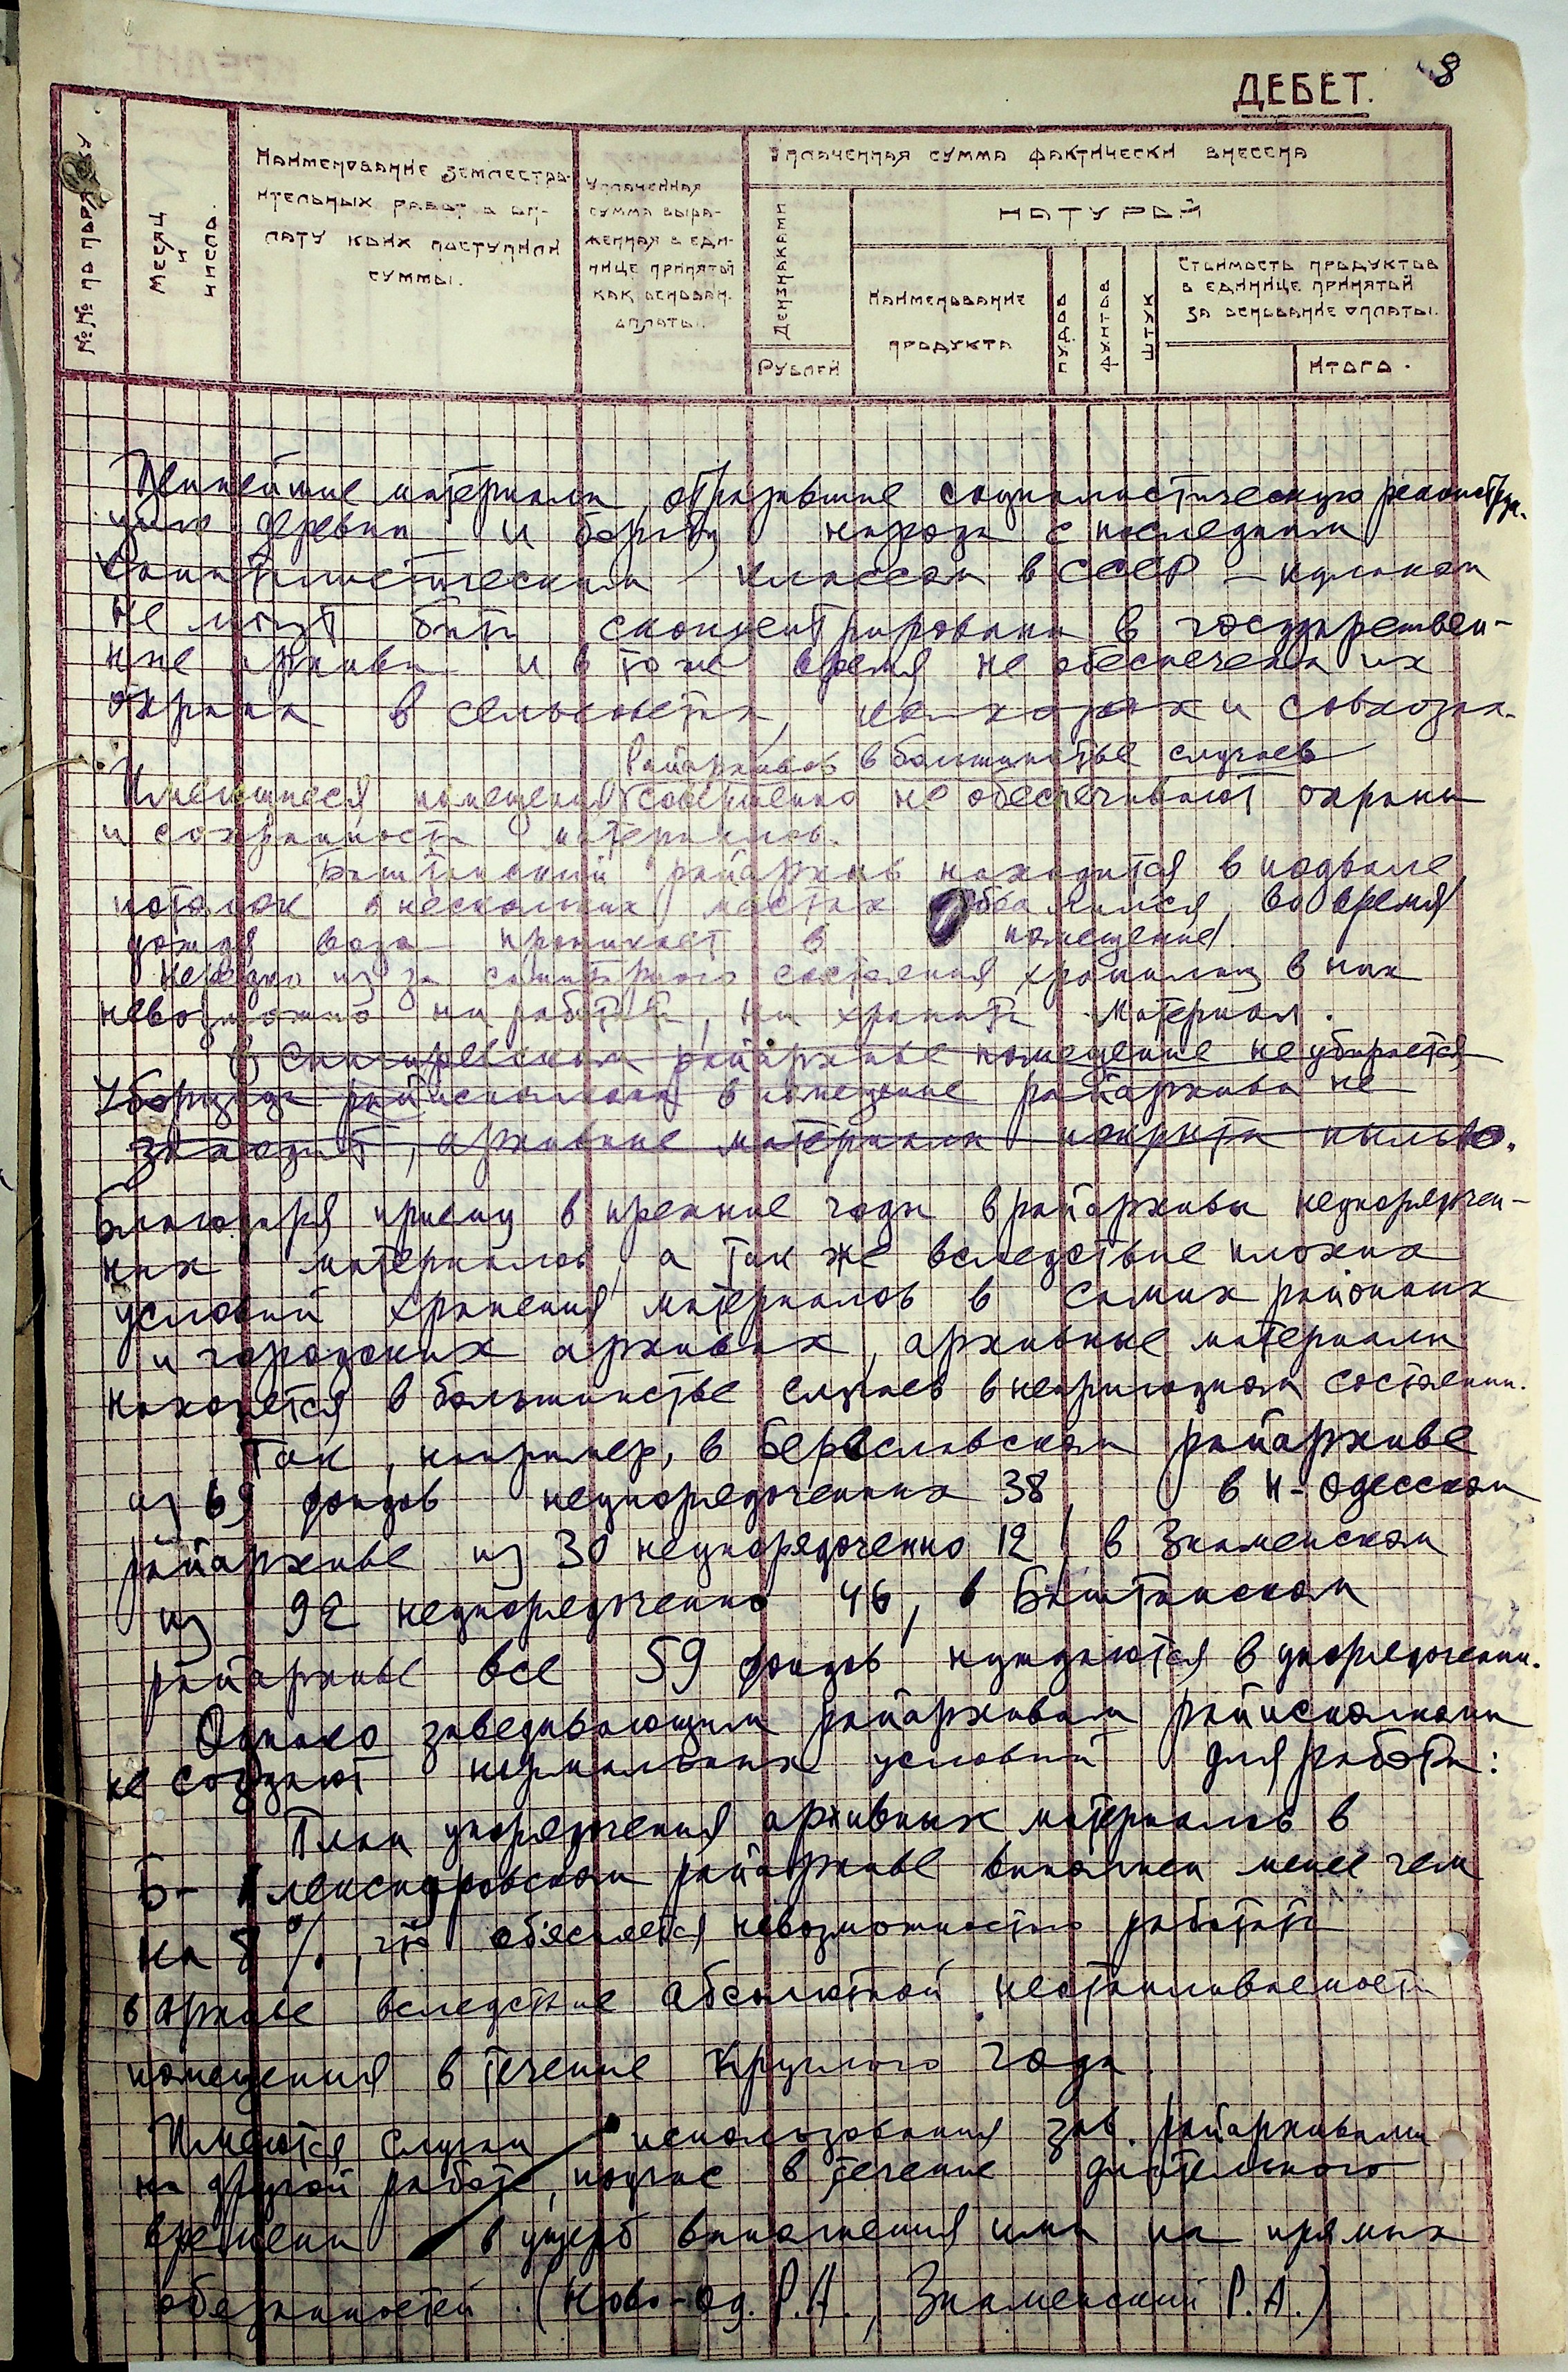 8
ДЕБЕТ.
№№ по поряду
Месяц и число.
Наименование землеустро-
ительных работ в оп-
лату коих поступили
суммы.
Уплаченная
сумма выра-
женная в еди-
нице принятой
как основан.
оплаты.
Уплаченная сумма фактически внесена
Дензнаками
Рублей
НАТУРОЙ
Наименование
продукта
пудов
фунтов
штук
Стоимость продуктов
в единице принятой
за основание оплаты.
Итого.
Ценнейшие материалы, отразившие социалистическую реконструк-
цию деревни и борьбу народа с последним
капиталистическим классом в СССР – кулаком
не могут быть сконцентрированы в государствен-
ные архивы и в то же время не обеспечена их
охрана в сельсоветах, колхозах и совхозах.
Райархивов в большинстве случаев
Имеющиеся помещения совершенно не обеспечивают охраны
и сохранности материалов.
Баштанский райархив находится в подвале,
потолок в нескольких местах обвалился, во время
дождя вода проникает в помещение.
Нередко из за санитарного состояния хранилищ в них
невозможно ни работать, ни хранить материал.
В Снигиревском райархиве помещение не убирается
Уборщица райисполкома в помещение райархива не
заходит, архивные материалы покрыты пылью.
Благодаря приему в прежние годы в райархивы неупорядочен-
ных материалов, а так же вследствие плохих
условий хранения материалов в самих районных
и городских архивах, архивные материалы
находятся в большинстве случаев в непригодном состоянии.
Так, например, в Бериславском райархиве
из 69 фондов неупорядоченных 38, в Н-Одесском
райархиве из 30 неупорядоченно 12, в Знаменском
из 92 неупорядоченно 46, в Баштанском
райархиве все 59 фондов нуждаются в упорядочении.
Однако заведывающим райархивам райисполкомы
не создают нормальных условий для работы:
План упорядочения архивных материалов в
Б-Александровском райархиве выполнен менее чем
на 8%, что объясняется невозможностью работать
в архиве вследствие абсолютной неотапливаемости
помещения в течение круглого года
Имеются случаи использования зав. райархивами
на другой работе, подчас в течение длительного
времени в ущерб выполнения ими их прямых
обязанностей. (Ново-Од. Р.А., Знаменский Р.А.)